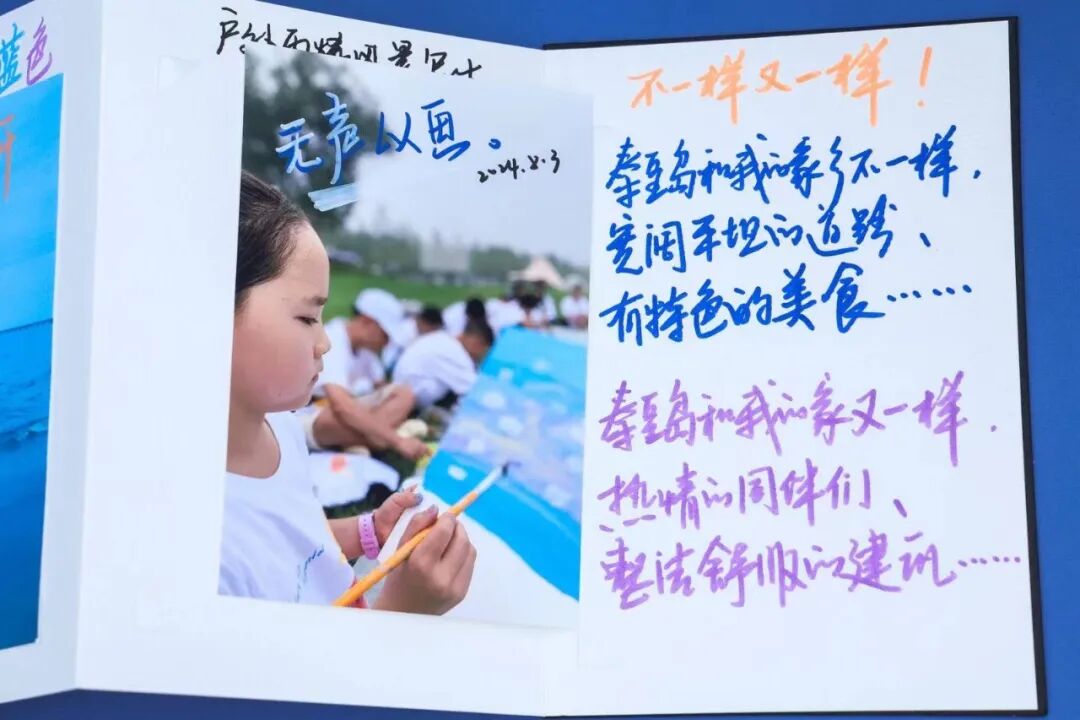 蓝色
无声以画。
2024.8.3
不一样又一样！
秦皇岛和我的家乡不一样，
宽阔平坦的道路、
有特色的美食……
秦皇岛和我的家又一样，
热情的同伴们、
整洁舒服的建筑……